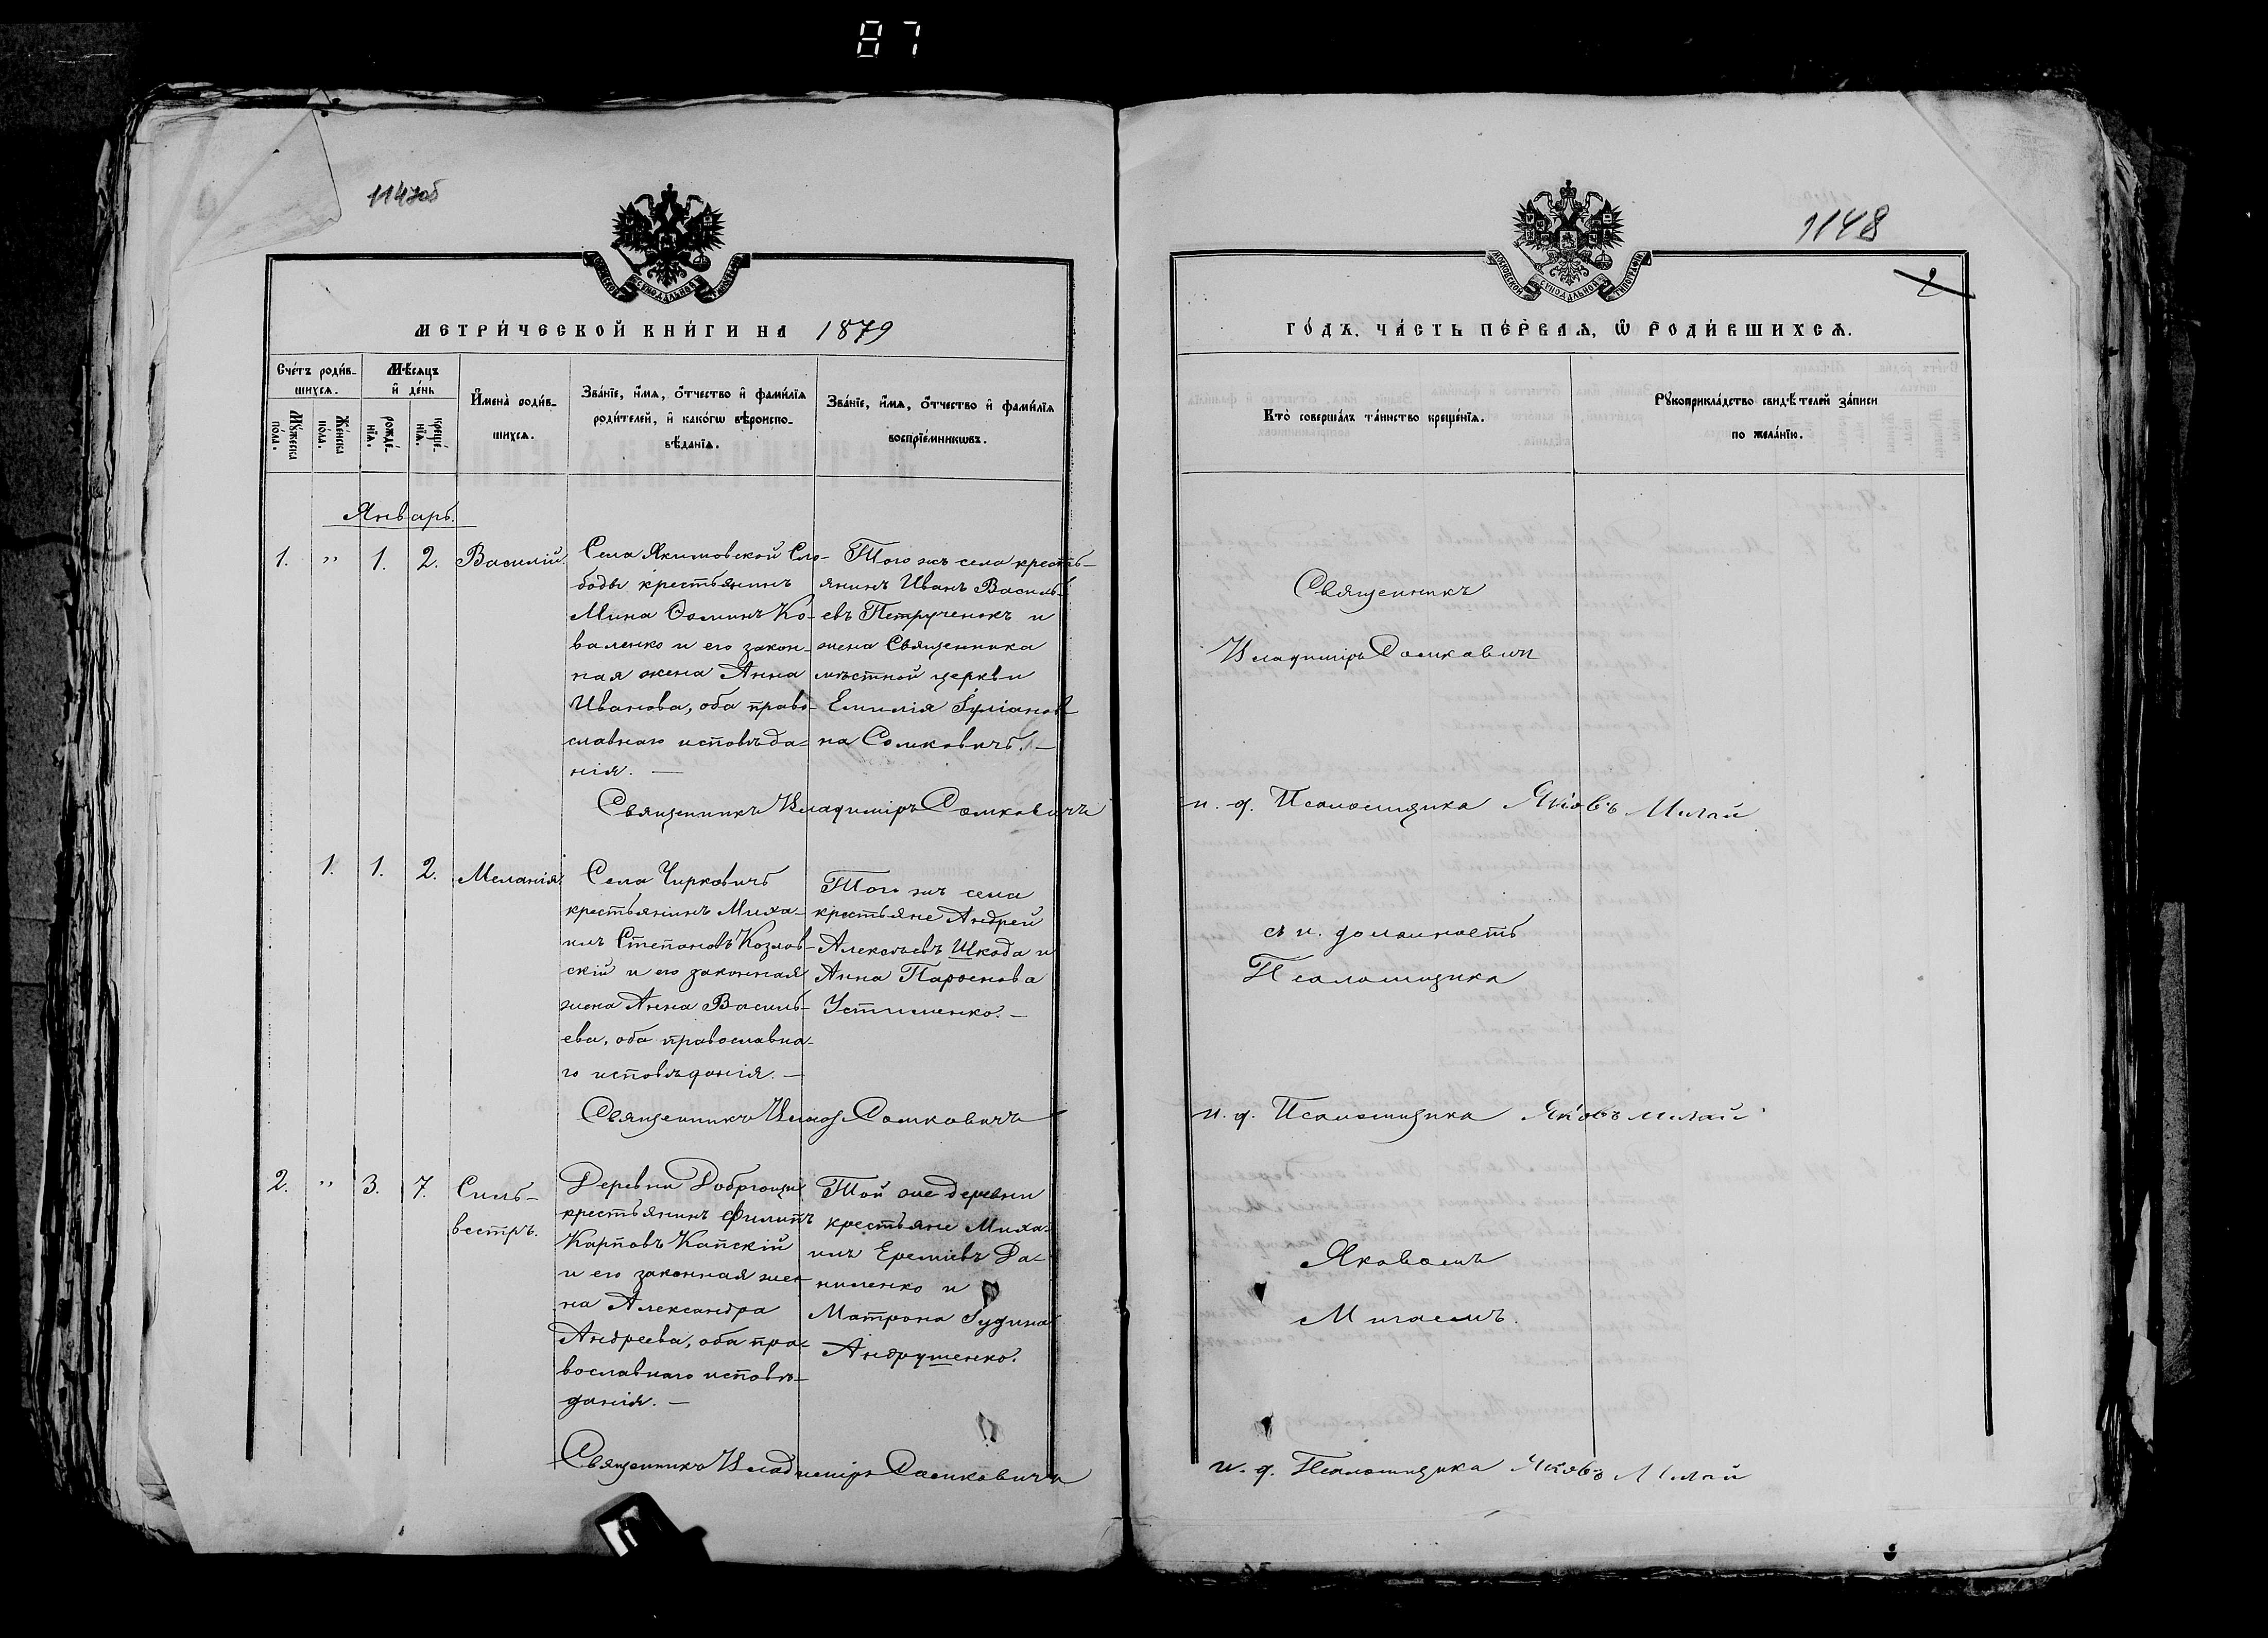 87
1147об
1148
2
МЕТРИ́ЧЕСКОЙ КНИ́ГИ НА 1879
ГО́ДЪ, ЧА́СТЬ ПЕ́РВАѦ, Ѡ҆ РОДИ́ВШИХСѦ.
Сче́тъ роди́в-
шихсѧ.
Мꙋ́жеска по́ла.
Же́нска по́ла.
Мѣ́сѧцъ
и҆ де́нь
рожде́-нїѧ.
креще́-нїѧ.
И҆мена̀ роди́в-
шихсѧ.
Зва́нїе, и҆́мѧ, ѻ҆́тчество и҆ фами́лїѧ
роди́телей, и҆ како́гѡ вѣроиспо-
вѣ́данїѧ.
Зва́нїе, и҆́мѧ, ѻ҆́тчество и҆ фами́лїѧ
воспрїе́мникѡвъ.
Кто̀ соверша́лъ та́инство креще́нїѧ.
Рꙋкоприкла́дство свидѣ́телей за́писи
по жела́нїю.
Январь.
1. " 1. 2. Василій.
Села Якимовской Сло-
боды крестьянинъ
Мина Ѳоминъ Ко-
валенко и его закон-
ная жена Анна
Иванова, оба право-
славнаго исповѣда-
нія. —
Того жъ села кресть-
янинъ Иванъ Василь-
евъ Петрученокъ и
жена Священника
мѣстной церкви
Емилія Іуліанов-
на Сомковичъ. —
Священникъ
Владиміръ Сомкович
Священникъ Владиміръ Сомковичъ
и. д. Псаломщика Яковъ Милай
1. 1. 2. Меланія.
Села Чирковичъ
крестьянинъ Миха-
илъ Степановъ Козлов-
скій и его законная
жена Анна Василь-
ева, оба православна-
го исповѣданія. —
Того жъ села
крестьяне Андрей
Алексѣевъ Шкода и
Анна Парѳенова
Устименко. —
съ и. должность
Псаломщика
Священникъ Влад Сомковичъ
и. д. Псаломщика Яковъ Милай
2. " 3. 7. Силь-
вестръ.
Деревни
крестьянинъ Филипъ
Карповъ Капскій
и его законная же-
на Александра
Андреева, оба пра-
вославнаго исповѣ-
данія. —
Той же деревни
крестьяне Миха-
илъ Ереміевъ Да-
ниленко и
Матрона Іудина
Андрушенко.
Яковомъ
Милаемъ.
Священникъ Владиміръ Сомковичъ
и. д. Псаломщика Яковъ Милай